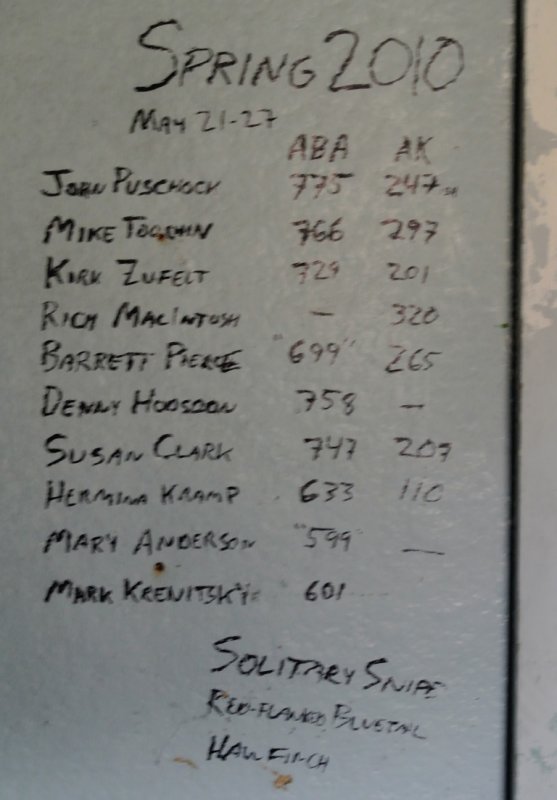 SPRING 2010
MAY 21-27
ABA AK
JOHN PUSCHOCK 775 247
MIKE TOOCHIN 766 297
KIRK ZUFELT 729 201
RICH MACINTOSH — 320
BARRETT PIERCE "699" 265
DENNY HODSDON 758 —
SUSAN CLARK 747 207
HERMINA KRAMP 633 110
MARY ANDERSON "599" —
MARK KRENITSKY 601
SOLITARY SNIPE
RED-FLANKED BLUETAIL
HAWFINCH